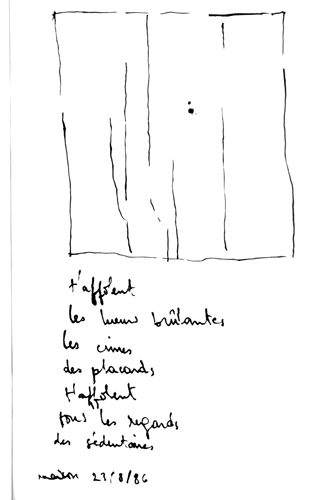 t'affolent
les lueurs brûlantes
les cimes
des placards
t'affolent
tous les regards
des sédentaires
23/8/86